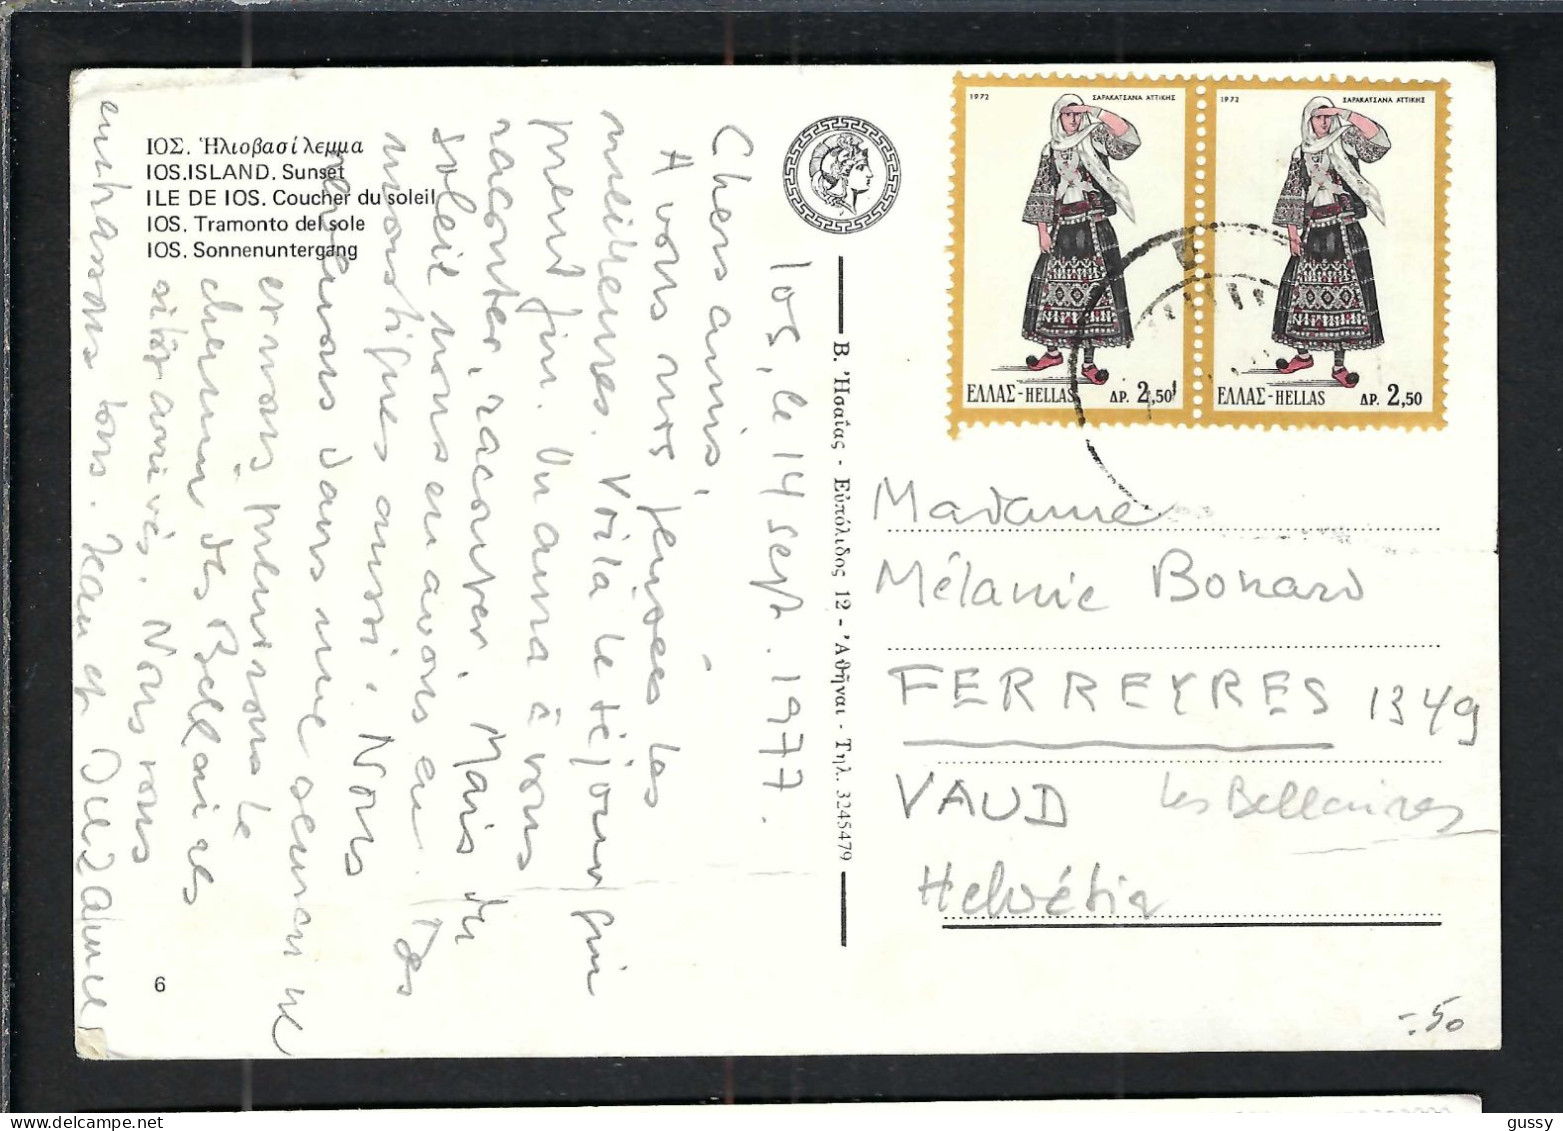 ΙΟΣ. Ἡλιοβασίλεμμα
IOS.ISLAND. Sunset
ILE DE IOS. Coucher du soleil
IOS. Tramonto del sole
IOS. Sonnenuntergang
6
Ios, le 14 sept. 1977.
Chers amis,
A vous nos pensées les
meilleures. Voilà le séjour qui
prend fin. On aura à vous
raconter, raconter. Mais du
soleil nous en avons eu. Des
moustiques aussi. Nous
dans une semaine
et nous prendrons le
chemin des Bellaires
sitôt arrivés. Nous vous
embrassons tous. Jean et Suzanne
Β. Ἡσαΐας - Εὐπόλιδος 12 - Ἀθῆναι - Τηλ. 3245479
1972
ΣΑΡΑΚΑΤΣΑΝΑ ΑΤΤΙΚΗΣ
ΕΛΛΑΣ-HELLAS ΔΡ. 2,50
1972
ΣΑΡΑΚΑΤΣΑΝΑ ΑΤΤΙΚΗΣ
ΕΛΛΑΣ-HELLAS ΔΡ. 2,50
Madame
Mélanie Bonard
FERREYRES 1349
VAUD Les Bellaires
Helvétia
-.50
gussy